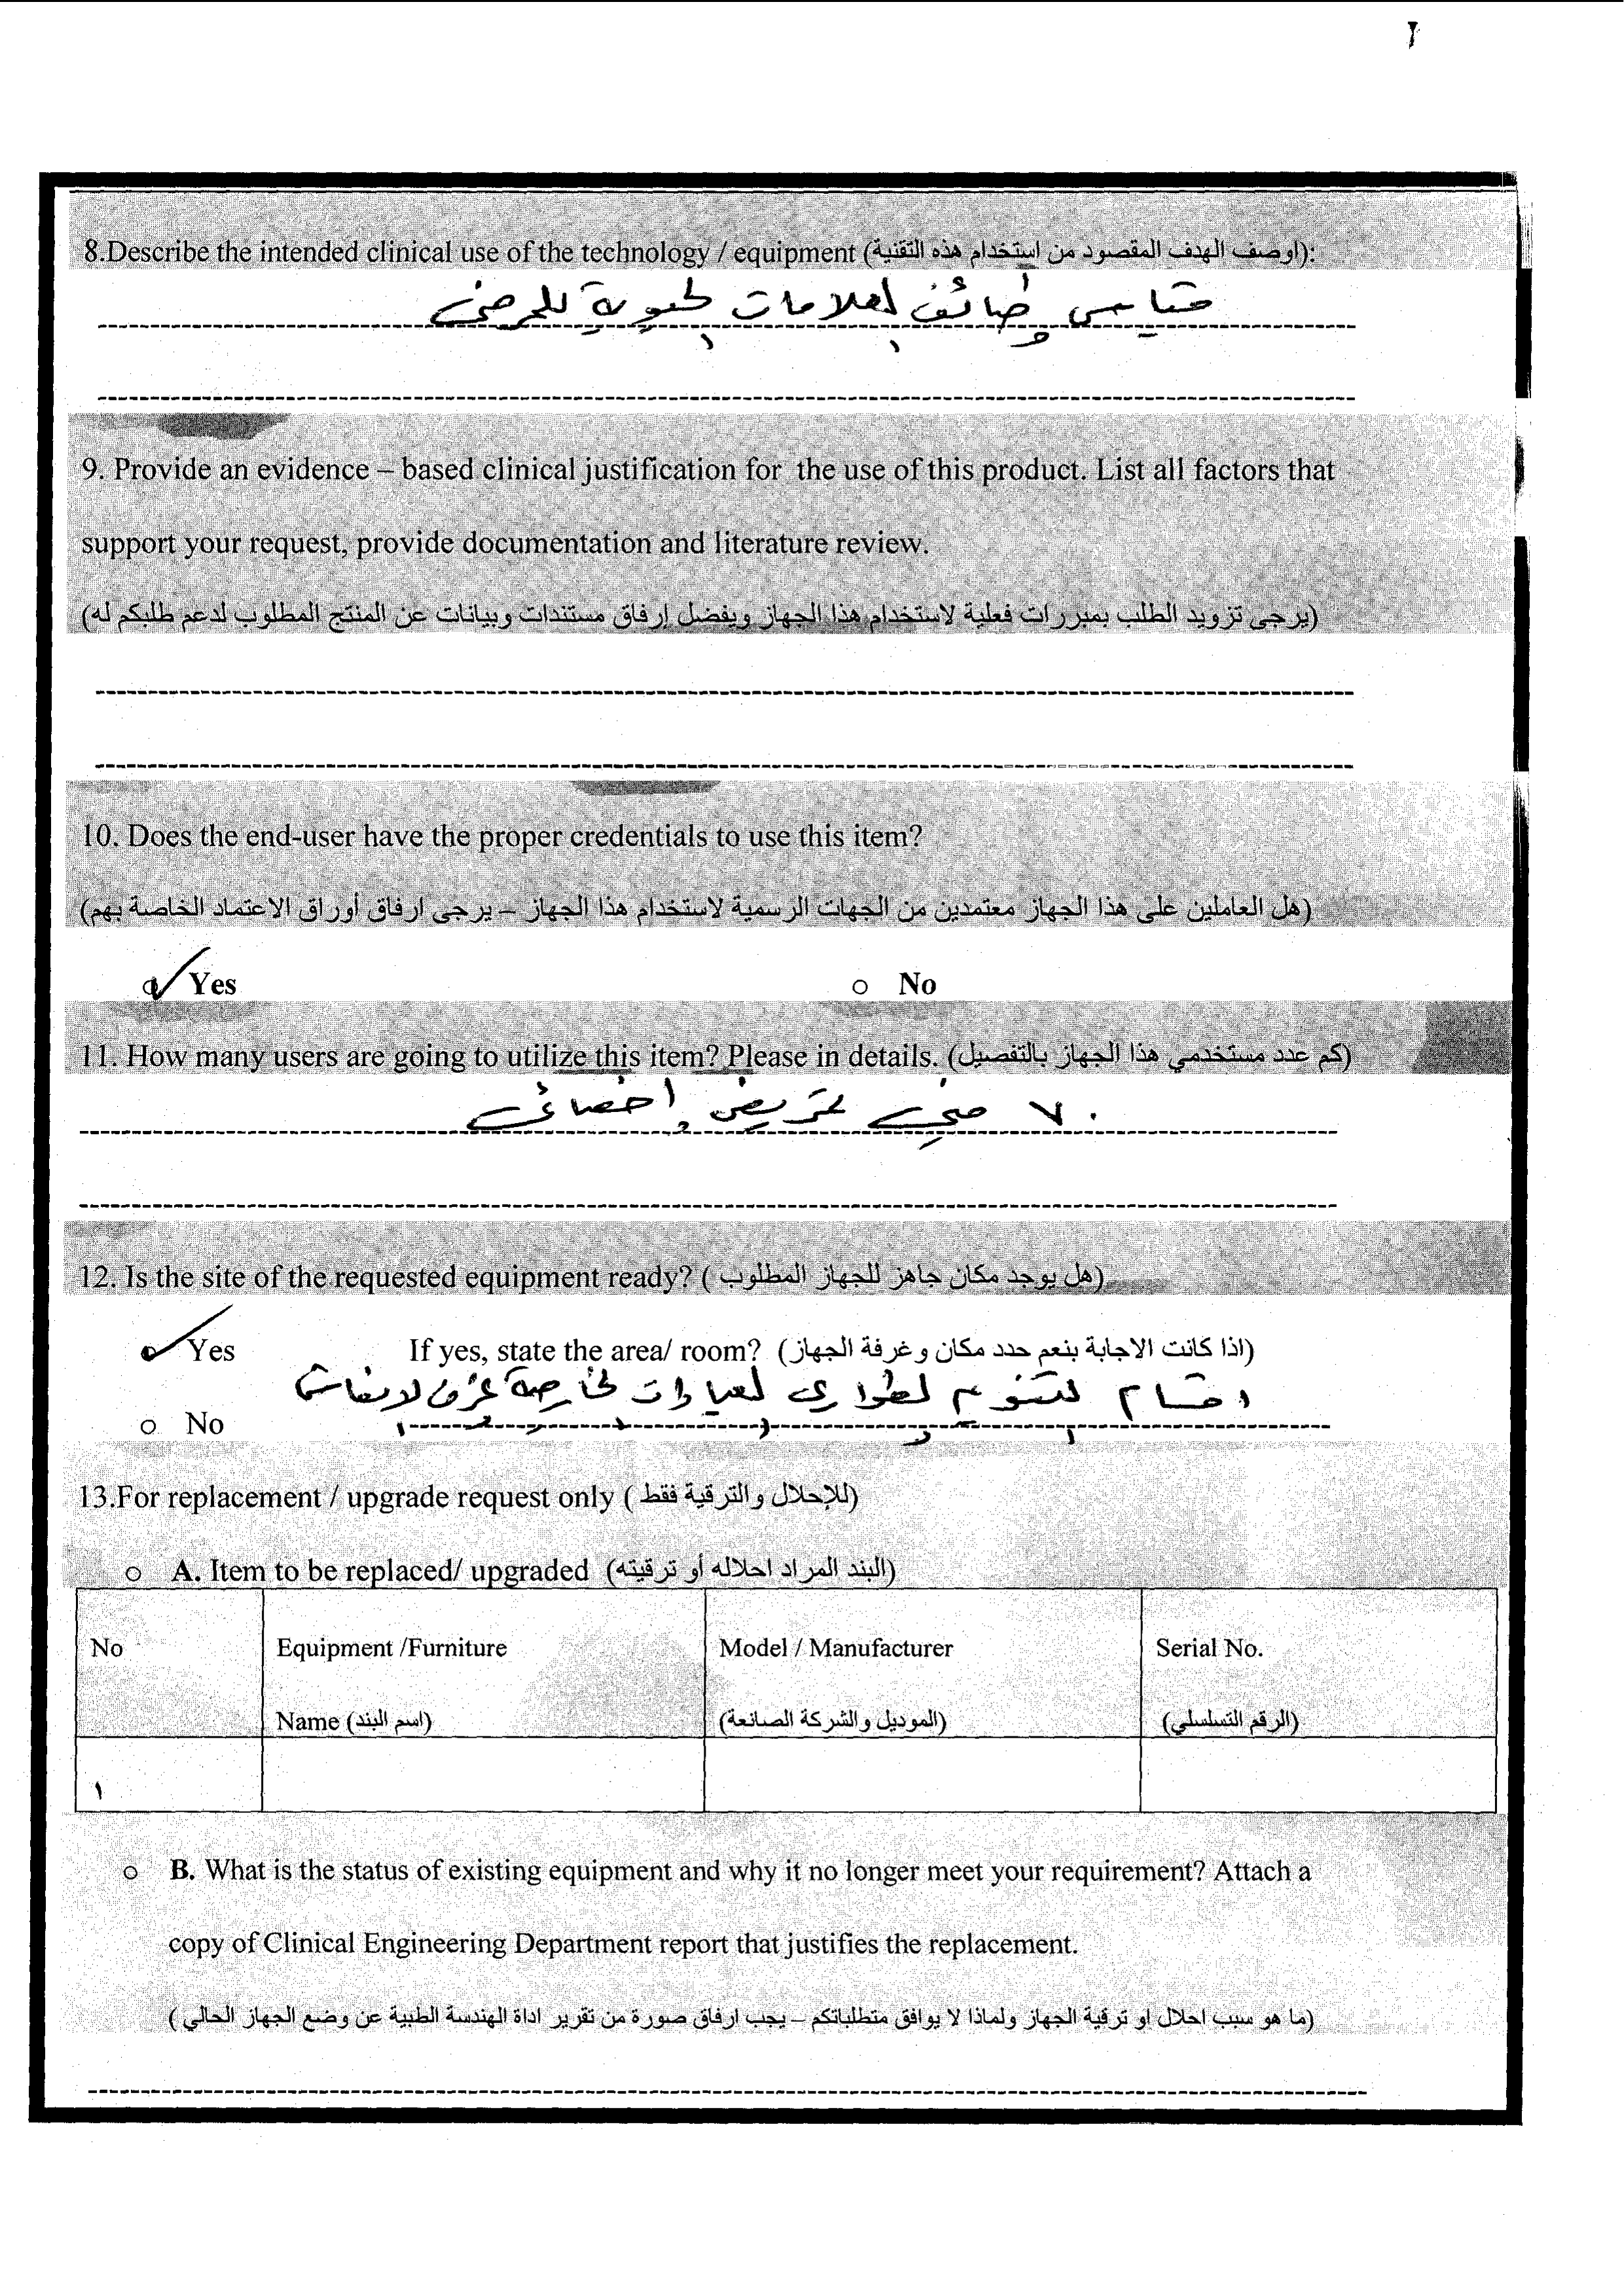 8.Describe the intended clinical use of the technology / equipment (اوصف الهدف المقصود من استخدام هذه التقنية):
قياس وظائف العلامات الحيوية للمرضى
9. Provide an evidence – based clinical justification for the use of this product. List all factors that
support your request, provide documentation and literature review.
(يرجى تزويد الطلب بمبررات فعلية لاستخدام هذا الجهاز ويفضل إرفاق مستندات وبيانات عن المنتج المطلوب لدعم طلبكم له)
10. Does the end-user have the proper credentials to use this item?
(هل العاملين على هذا الجهاز معتمدين من الجهات الرسمية لاستخدام هذا الجهاز – يرجى ارفاق أوراق الاعتماد الخاصة بهم)
Yes
No
11. How many users are going to utilize this item? Please in details. (كم عدد مستخدمي هذا الجهاز بالتفصيل)
٧٠ فني تمريض إخصائي
12. Is the site of the requested equipment ready? (هل يوجد مكان جاهز للجهاز المطلوب)
Yes If yes, state the area/ room? (اذا كانت الاجابة بنعم حدد مكان وغرفة الجهاز)
اقسام التنويم الطوارى العيادات الخارجية غرف الانعاش
No
13.For replacement / upgrade request only (للإحلال والترقية فقط)
A. Item to be replaced/ upgraded (البند المراد احلاله أو ترقيته)
No Equipment /Furniture Model / Manufacturer Serial No.
Name (اسم البند) (الموديل والشركة الصانعة) (الرقم التسلسلي)
١
B. What is the status of existing equipment and why it no longer meet your requirement? Attach a
copy of Clinical Engineering Department report that justifies the replacement.
(ما هو سبب احلال او ترقية الجهاز ولماذا لا يوافق متطلباتكم – يجب ارفاق صورة من تقرير اداة الهندسة الطبية عن وضع الجهاز الحالي)